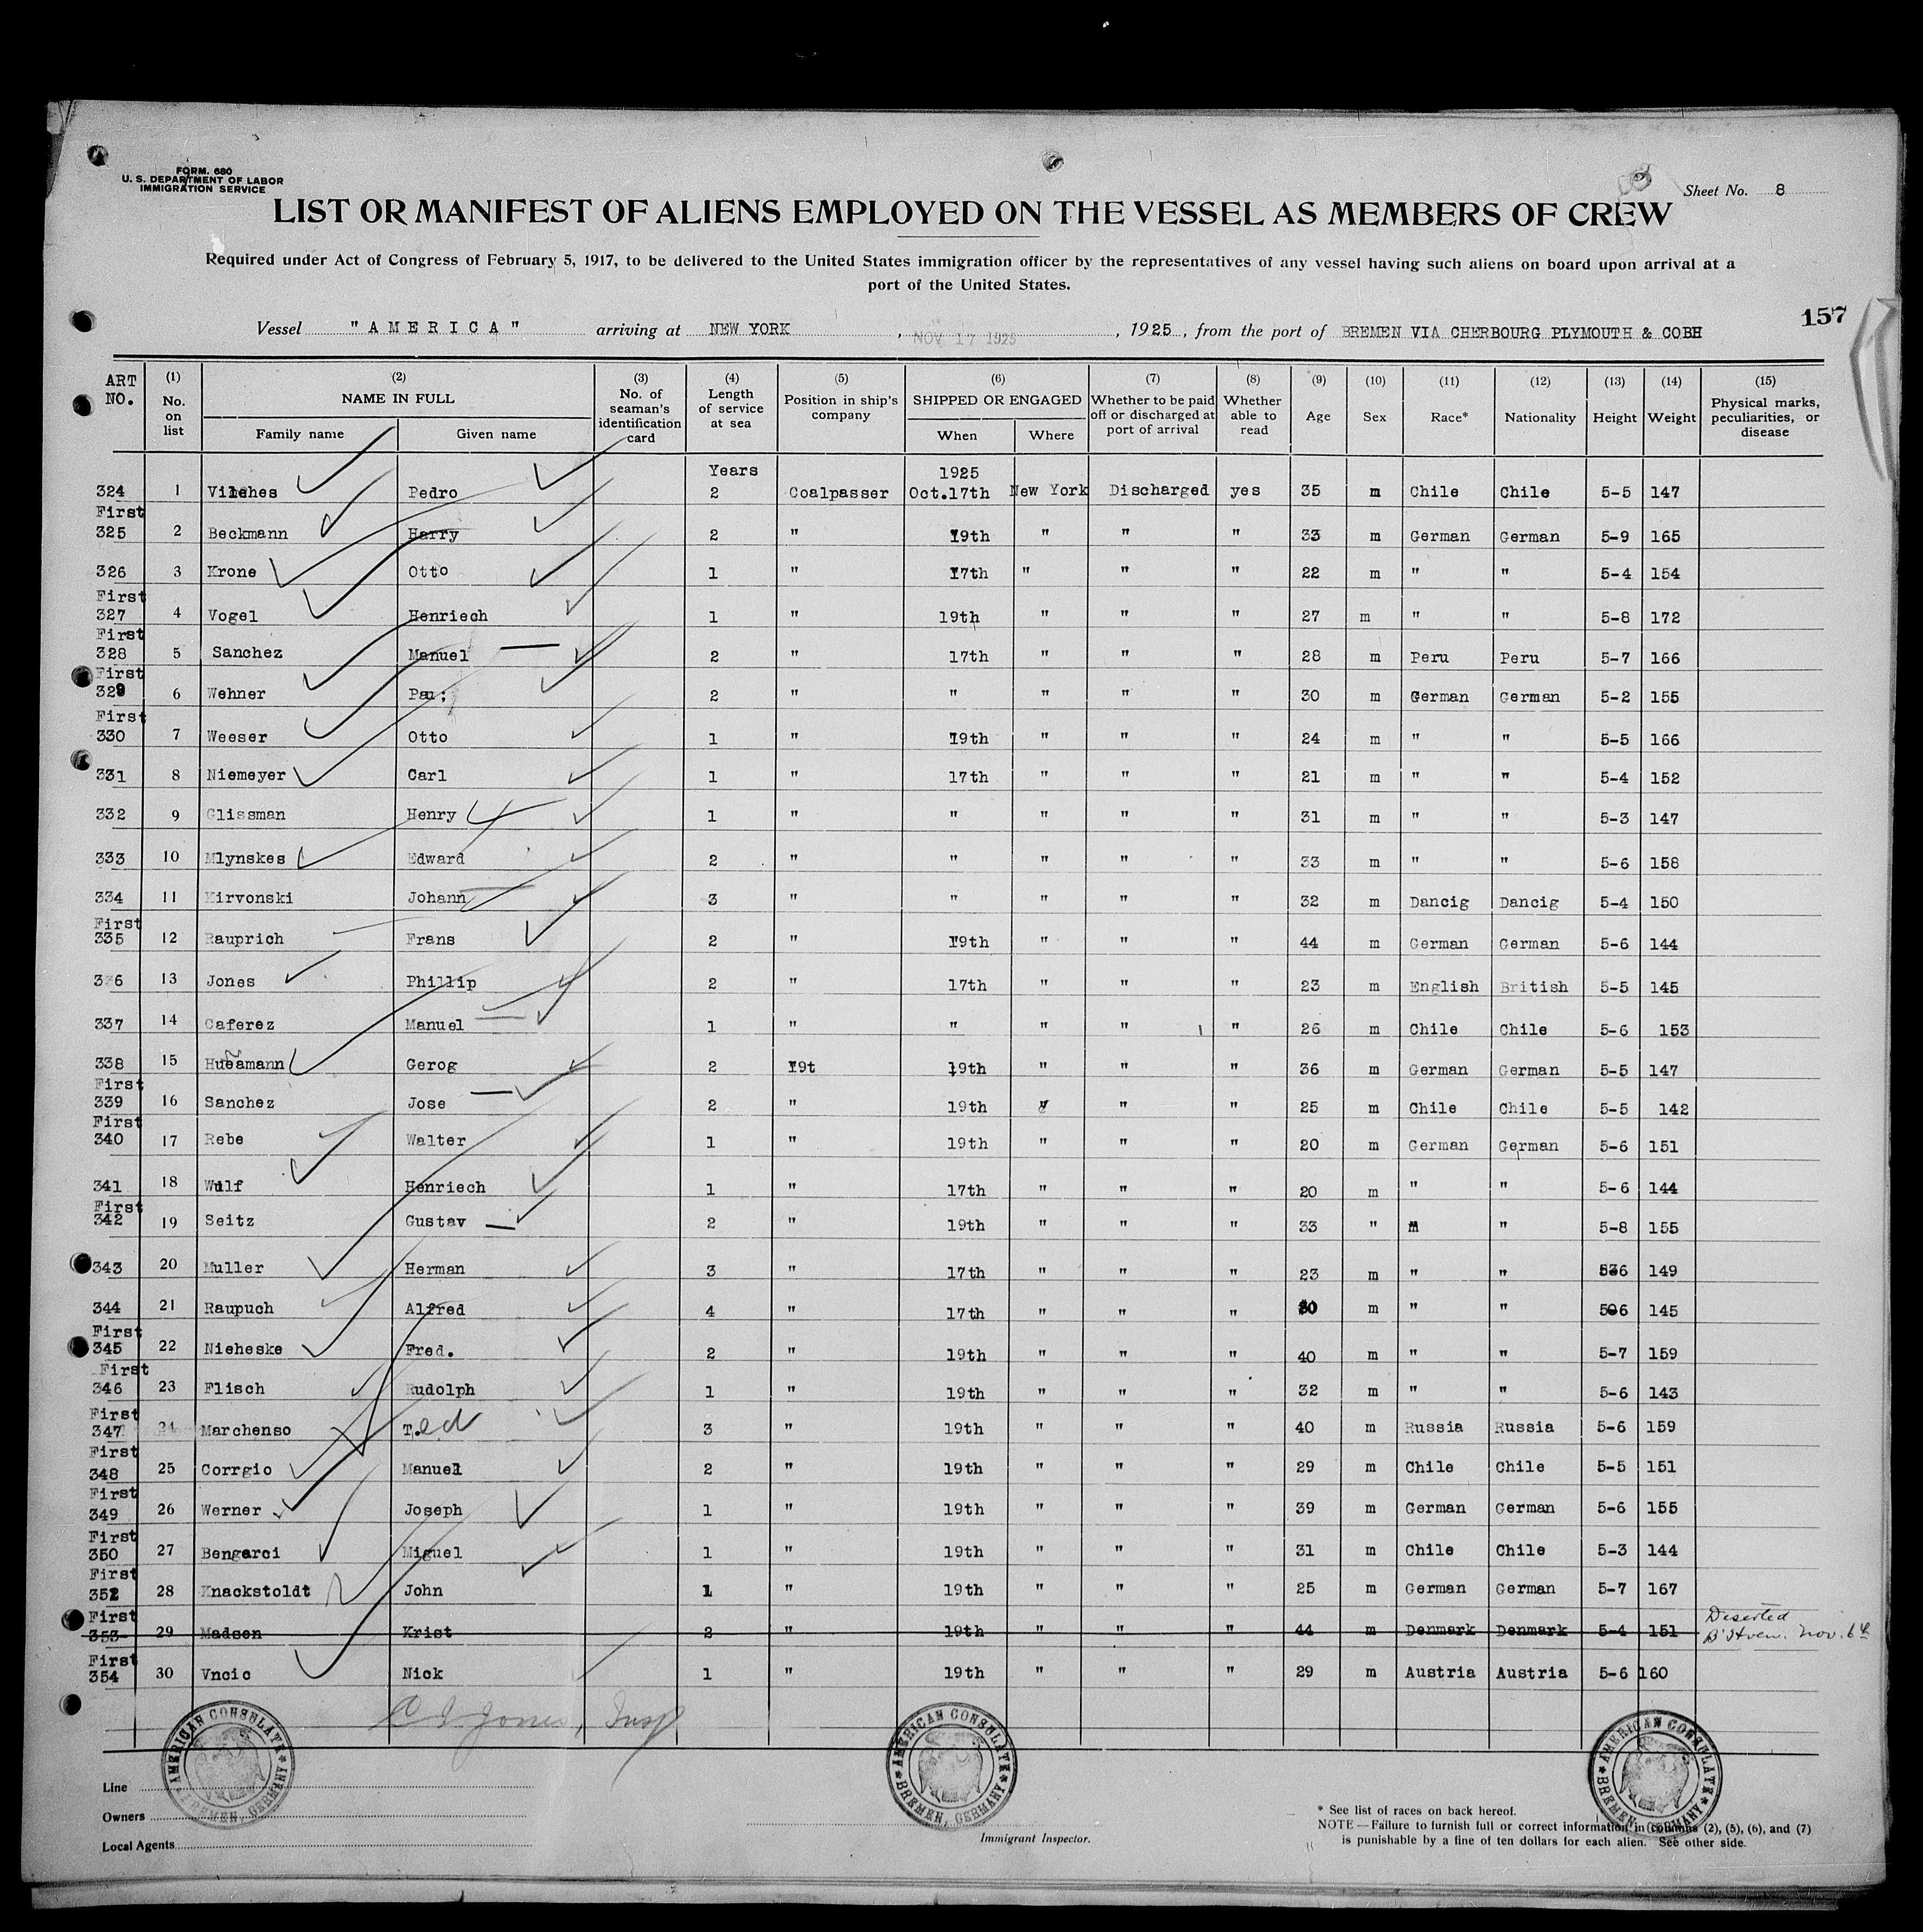 FORM. 680
U. S. DEPARTMENT OF LABOR
IMMIGRATION SERVICE
Sheet No. 8
LIST OR MANIFEST OF ALIENS EMPLOYED ON THE VESSEL AS MEMBERS OF CREW
Required under Act of Congress of February 5, 1917, to be delivered to the United States immigration officer by the representatives of any vessel having such aliens on board upon arrival at a
port of the United States.
157
Vessel "AMERICA" arriving at NEW YORK, NOV 17 1925, 1925, from the port of BREMEN VIA CHERBOURG PLYMOUTH & COBH
ART NO. (1) No. on list (2) NAME IN FULL Family name Given name (3) No. of seaman's identification card (4) Length of service at sea (5) Position in ship's company (6) SHIPPED OR ENGAGED When Where (7) Whether to be paid off or discharged at port of arrival (8) Whether able to read (9) Age (10) Sex (11) Race* (12) Nationality (13) Height (14) Weight (15) Physical marks, peculiarities, or disease
Years 1925
324 1 Vilches Pedro 2 Coalpasser Oct.17th New York Discharged yes 35 m Chile Chile 5-5 147
First
325 2 Beckmann Harry 2 " 19th " " " 33 m German German 5-9 165
326 3 Krone Otto 1 " 17th " " " 22 m " " 5-4 154
First
327 4 Vogel Henriech 1 " 19th " " " 27 m " " 5-8 172
First
328 5 Sanchez Manuel 2 " 17th " " " 28 m Peru Peru 5-7 166
First
329 6 Wehner Pau; 2 " " " " " 30 m German German 5-2 155
First
330 7 Weeser Otto 1 " 19th " " " 24 m " " 5-5 166
331 8 Niemeyer Carl 1 " 17th " " " 21 m " " 5-4 152
332 9 Glissman Henry 1 " " " " " 31 m " " 5-3 147
333 10 Mlynskes Edward 2 " " " " " 33 m " " 5-6 158
334 11 Kirvonski Johann 3 " " " " " 32 m Dancig Dancig 5-4 150
First
335 12 Rauprich Frans 2 " 19th " " " 44 m German German 5-6 144
336 13 Jones Phillip 2 " 17th " " " 23 m English British 5-5 145
337 14 Caferez Manuel 1 " " " " " 26 m Chile Chile 5-6 153
338 15 Gerog 2 19t 19th " " " 36 m German German 5-5 147
First
339 16 Sanchez Jose 2 " 19th " " " 25 m Chile Chile 5-5 142
First
340 17 Rebe Walter 1 " 19th " " " 20 m German German 5-6 151
341 18 Wulf Henriech 1 " 17th " " " 20 m " " 5-6 144
First
342 19 Seitz Gustav 2 " 19th " " " 33 " m " 5-8 155
343 20 Muller Herman 3 " 17th " " " 23 m " " 5-6 149
344 21 Raupuch Alfred 4 " 17th " " " 30 m " " 5-6 145
First
345 22 Nieheske Fred. 2 " 19th " " " 40 m " " 5-7 159
First
346 23 Flisch Rudolph 1 " 19th " " " 32 m " " 5-6 143
First
347 24 Marchenso T.ed 3 " 19th " " " 40 m Russia Russia 5-6 159
First
348 25 Corrgio Manuel 2 " 19th " " " 29 m Chile Chile 5-5 151
First
349 26 Werner Joseph 1 " 19th " " " 39 m German German 5-6 155
First
350 27 Bengarci Miguel 1 " 19th " " " 31 m Chile Chile 5-3 144
First
352 28 Knackstoldt John 1 " 19th " " " 25 m German German 5-7 167
First
353 29 Madsen Krist 2 " 19th " " " 44 m Denmark Denmark 5-4 151 Deserted B'Hven. Nov. 6th
First
354 30 Vncic Nick 1 " 19th " " " 29 m Austria Austria 5-6 160
C I Jones, Insp
AMERICAN CONSULATE BREMEN, GERMANY
AMERICAN CONSULATE BREMEN, GERMANY
AMERICAN CONSULATE BREMEN, GERMANY
Line
Owners
Local Agents
Immigrant Inspector.
* See list of races on back hereof.
NOTE — Failure to furnish full or correct information in columns (2), (5), (6), and (7)
is punishable by a fine of ten dollars for each alien. See other side.